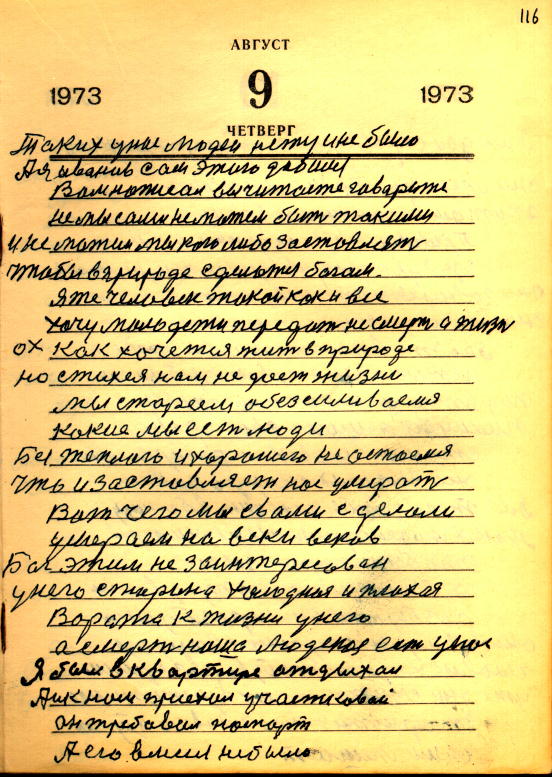 116
АВГУСТ
1973 9 1973
ЧЕТВЕРГ
Таких у нас людей нету и не было
А я иванов сам этого добился
Вам написал вы читаете говарите
не мы сами не можем быть такими
и не можим мы кого либо заставлят
чтобы в природе сделался богам.
я же человек такой как и все
хочу молодежи передат не смерт а жизн
ох как хочется жит в природе
но стихея нам не дает жизни
мы стареем обезсиливаемя
какие мы ест люди
Без теплого и хорошего не астаемя
Что и заставляет нас умират
Вот чего мы с вами сделали
умераем на веки веков
Бог этим не заинтересован
у него старина холодная и плохая
Варата к жизни у него
а смерт наша людская ест у нас
Я был в квартире атдыхал
А к нам приехал участковай
он требавал паспарт
А его в меня небыло